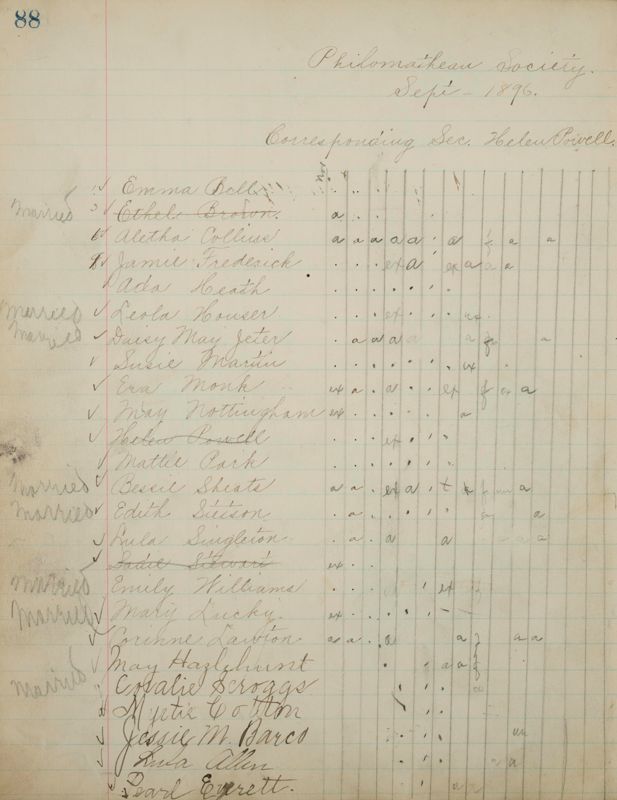 88
Philomathean Society.
Sept - 1896.
Corresponding Sec. Helen Powell.
Nov
Emma Bell . . .
Married Ethel Brown. a . .
Aletha Collins a a a a a a f a a
Jamie Frederick . . . ex a ex a a a
Ada Heath
Married Leola Houser . . . ex
Married Daisy May Jeter . a a a a a f a
Susie Martin ex
Era Monk ex a . a ex f ex a
May Nottingham ex . . . a
Helen Powell . . . ex
Mattie Park
Married Bessie Sheats a a . ex a t f a
Married Edith Stetson . a a
Lula Singleton . . . a a a a
Sadie Stewart ex . .
Married Emily Williams ex
Married Mary Lucky. ex
Corinne Lawton a a . a a a a
May Hazlehurst a a
Married Coralie Scroggs a
Myrtie Cotton
Jessie M. Barco
Allen a
Pearl Everett. a